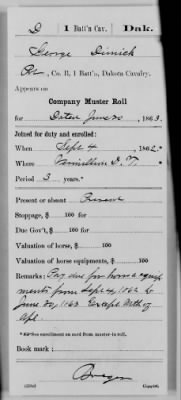 D | 1 Batt'n Cav. | Dak.
George Dimick
, Co. B, 1 Batt'n, Dakota Cavalry.
Appears on
Company Muster Roll
for Dated June 30, 1863.
Joined for duty and enrolled:
When Sept 4, 1862.*
Where Vermillion D.T.
Period 3 years.*
Present or absent Present
Stoppage, $ 100 for
Due Gov't, $ 100 for
Valuation of horse, $ 100
Valuation of horse equipments, $ 100
Remarks: Pay due for horse & equip
ments from Sept 4, 1862 to
June 30, 1863 Except Mth of
Apl.
* See enrollment on card from muster-in roll.
Book mark:
Copyist.